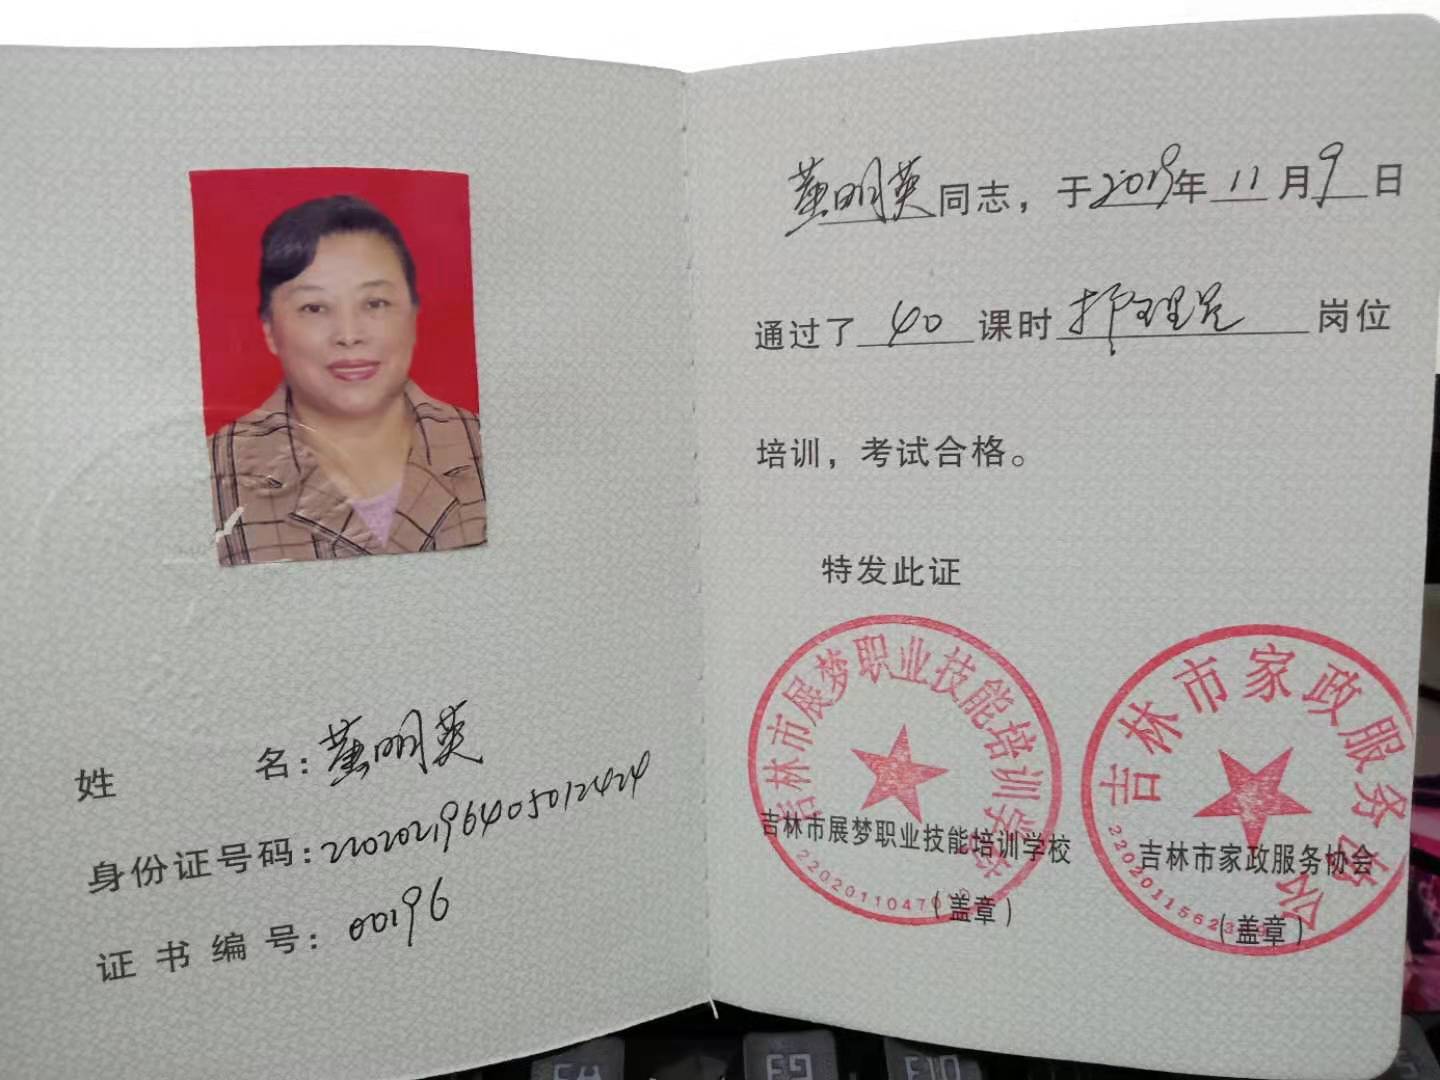 姓名：董明英
身份证号码：220202196405012424
证书编号：00196
董明英同志，于2019年11月9日
通过了40课时护理员岗位
培训，考试合格。
特发此证
吉林市展梦职业技能培训学校
吉林市展梦职业技能培训学校
（盖章）
吉林市家政服务协会
吉林市家政服务协会
（盖章）
F9
F10